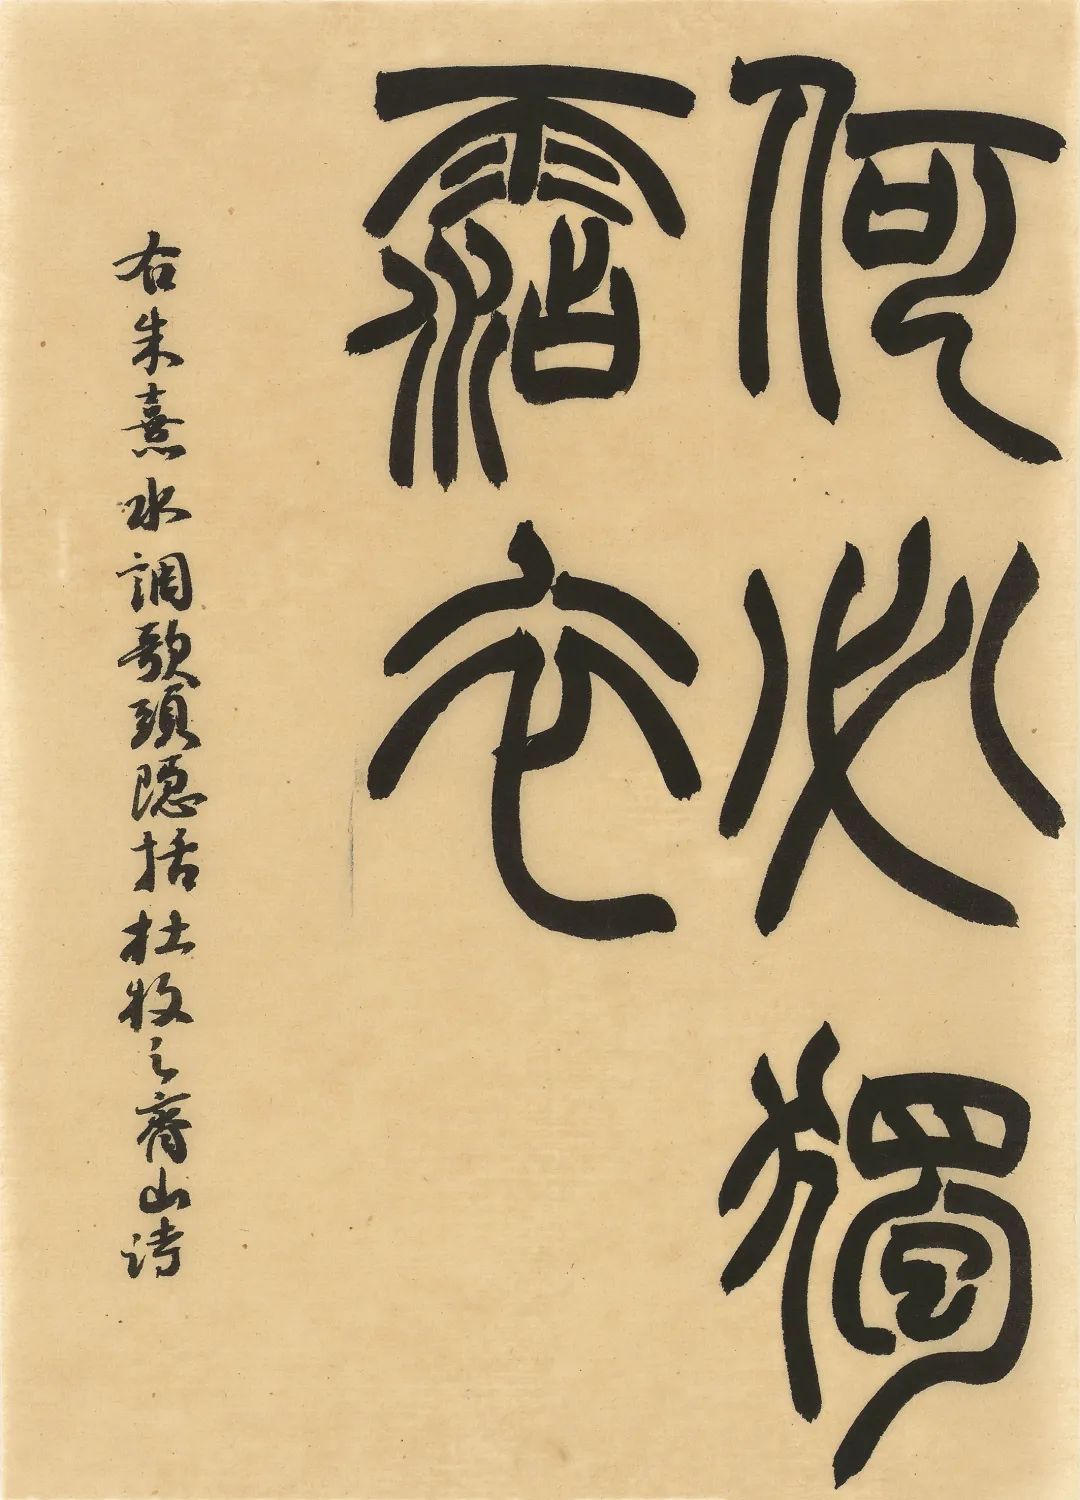 何必獨
霑衣
右朱熹水調歌頭隱括杜牧之齊山詩